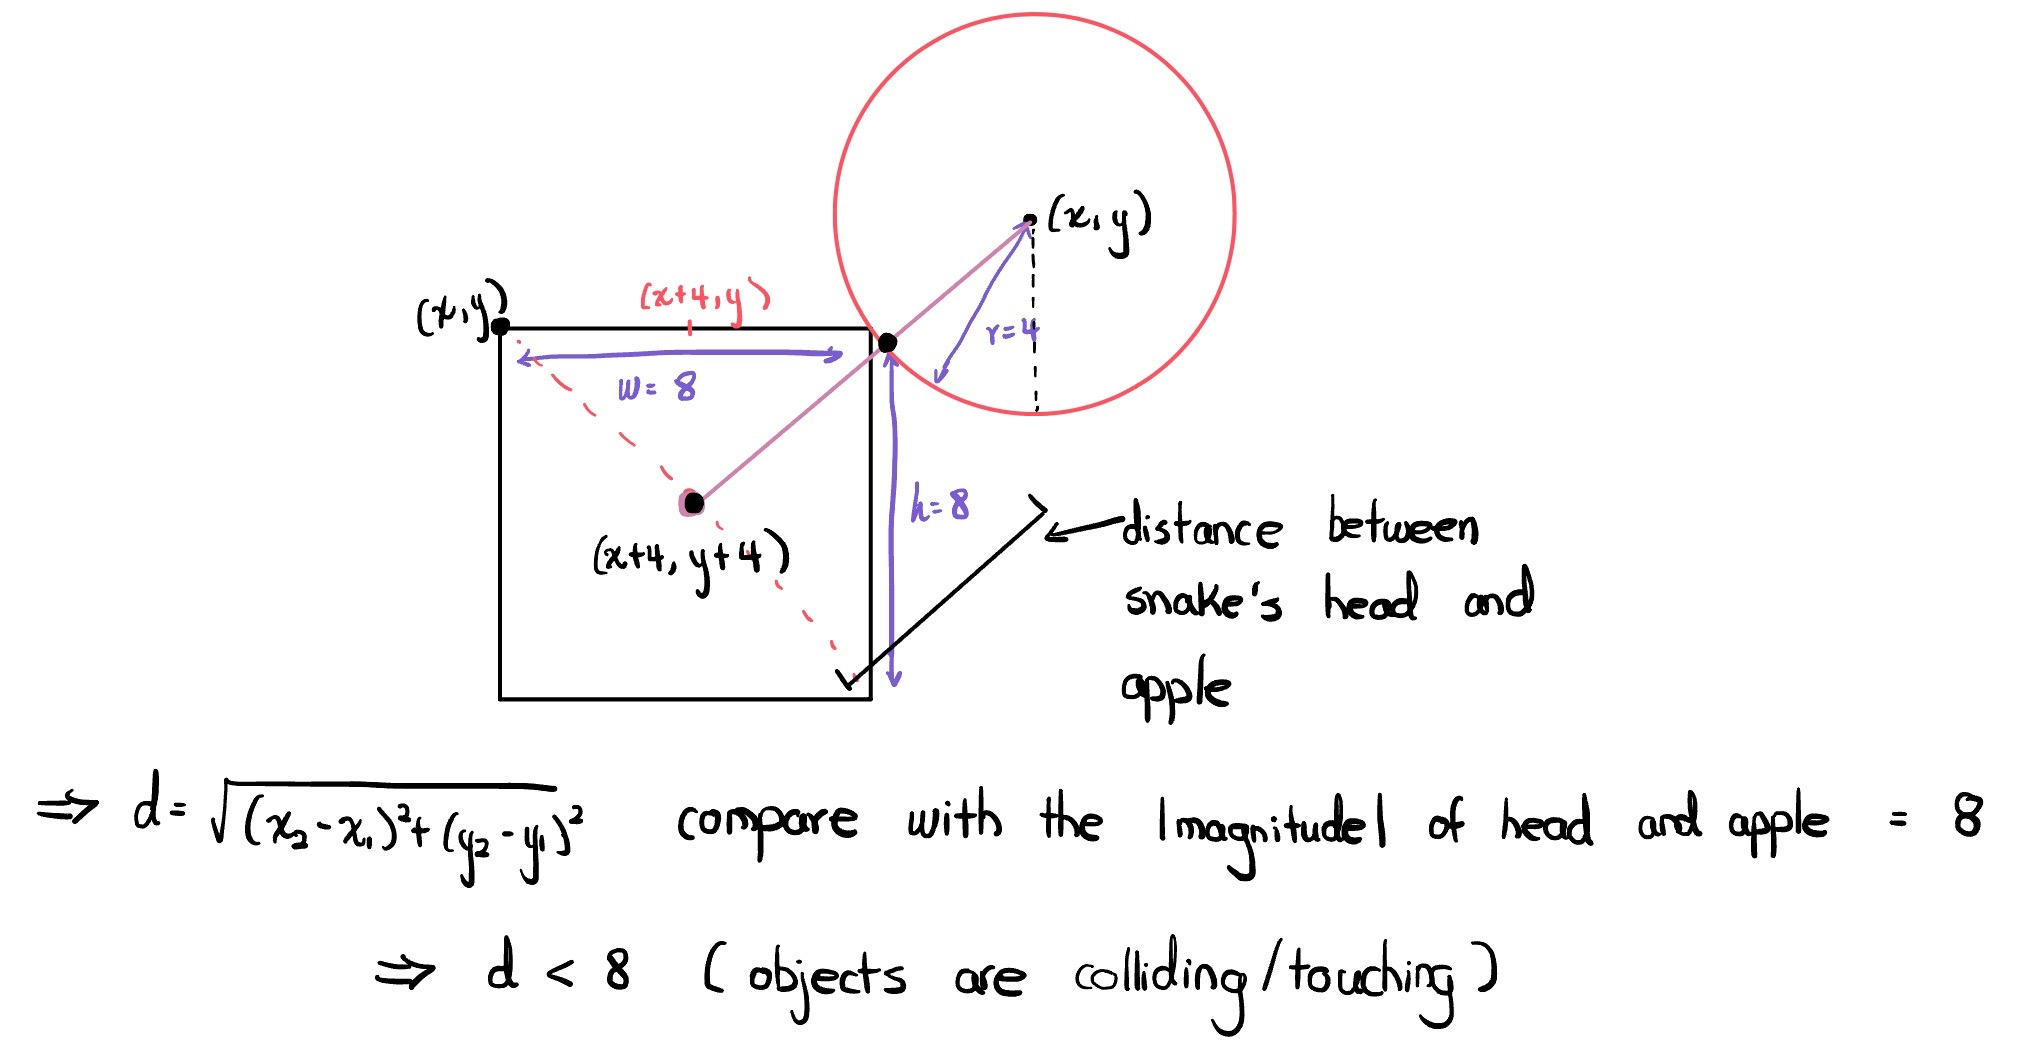 (x,y)
(x,y)
(x+4,y)
r=4
w=8
h=8
(x+4,y+4)
distance between
snake's head and
apple
⇒ d=√(x₂-x₁)²+(y₂-y₁)² compare with the |magnitude| of head and apple = 8
⇒ d < 8 (objects are colliding/touching)